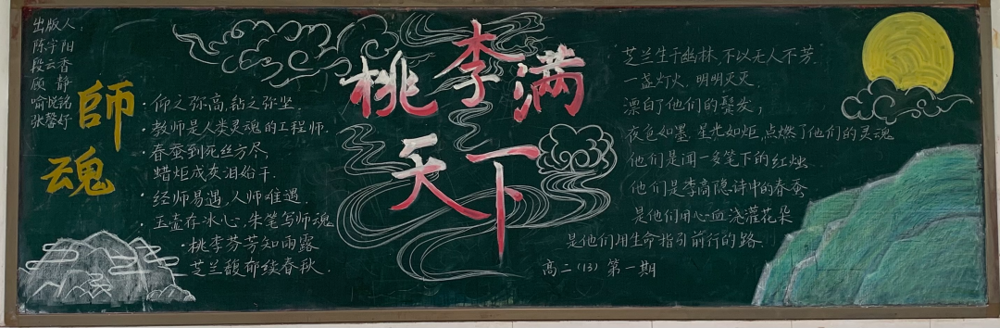 出版人:
陈宇阳
段云香
顾静
喻悦铭
张馨妤
師魂
桃李满天下
·仰之弥高,钻之弥坚.
·教师是人类灵魂的工程师.
·春蚕到死丝方尽,
蜡炬成灰泪始干.
·经师易遇,人师难遇.
·玉壶存冰心,朱笔写师魂
·桃李芬芳知雨露
芝兰馥郁续春秋.
"芝兰生于幽林,不以无人不芳."
一盏灯火,明明灭灭,
漂白了他们的鬓发;
夜色如墨,星光如炬,点燃了他们的灵魂
他们是闻一多笔下的红烛
他们是李商隐诗中的春蚕
是他们用心血浇灌花朵
是他们用生命指引前行的路.
高二(13)第一期